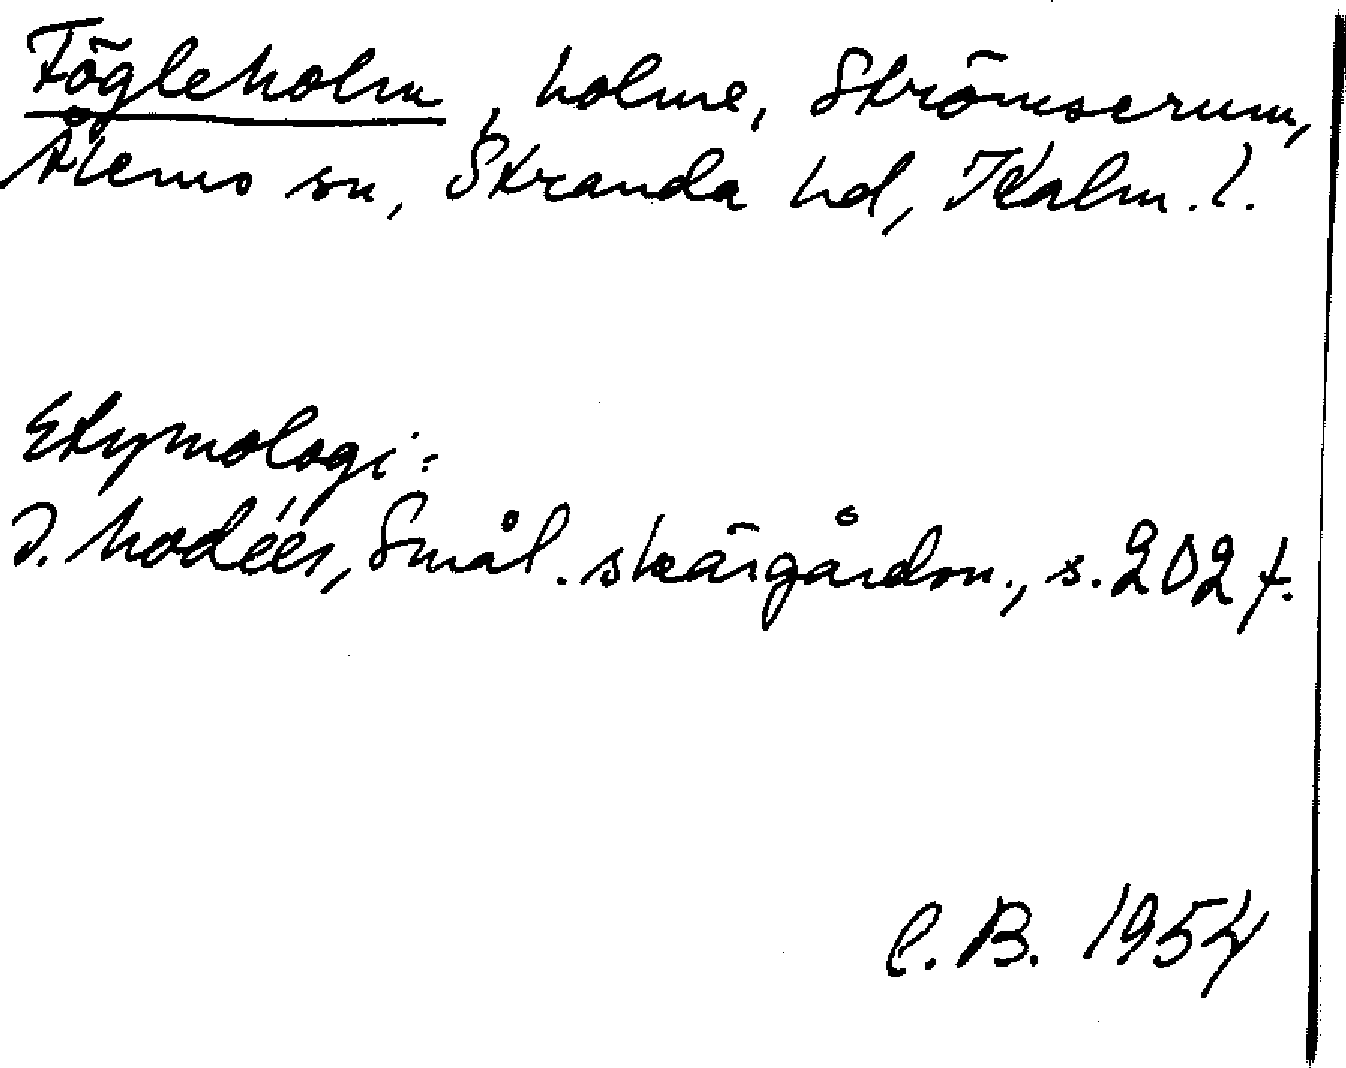 Fögleholm, holme, Strömserum,
Ålems sn, Stranda hd, Kalm. l.
Etymologi:
I. Modéer, Smål. skärgårdsn., s. 202 f.
C. B. 1954